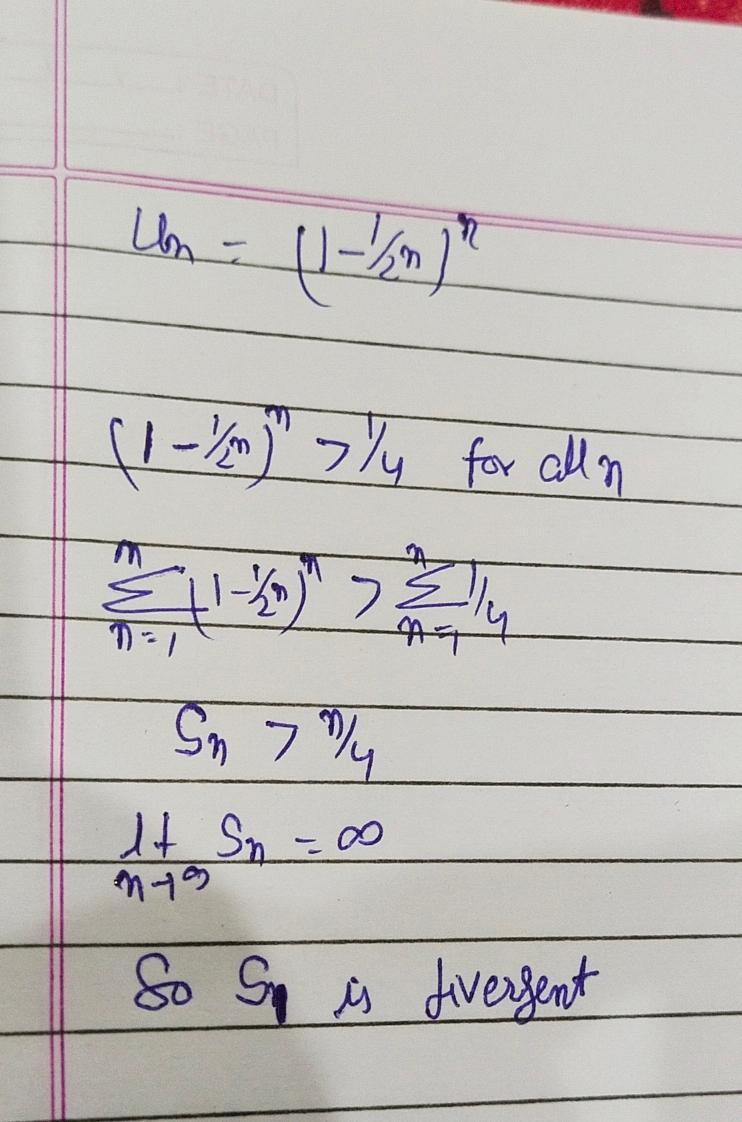 Un = (1-1/2n)^n
(1-1/2n)^n > 1/4 for all n
n∑n=1 (1-1/2n)^n > n∑n=1 1/4
Sn > n/4
lt n→∞ Sn = ∞
So Sn is divergent